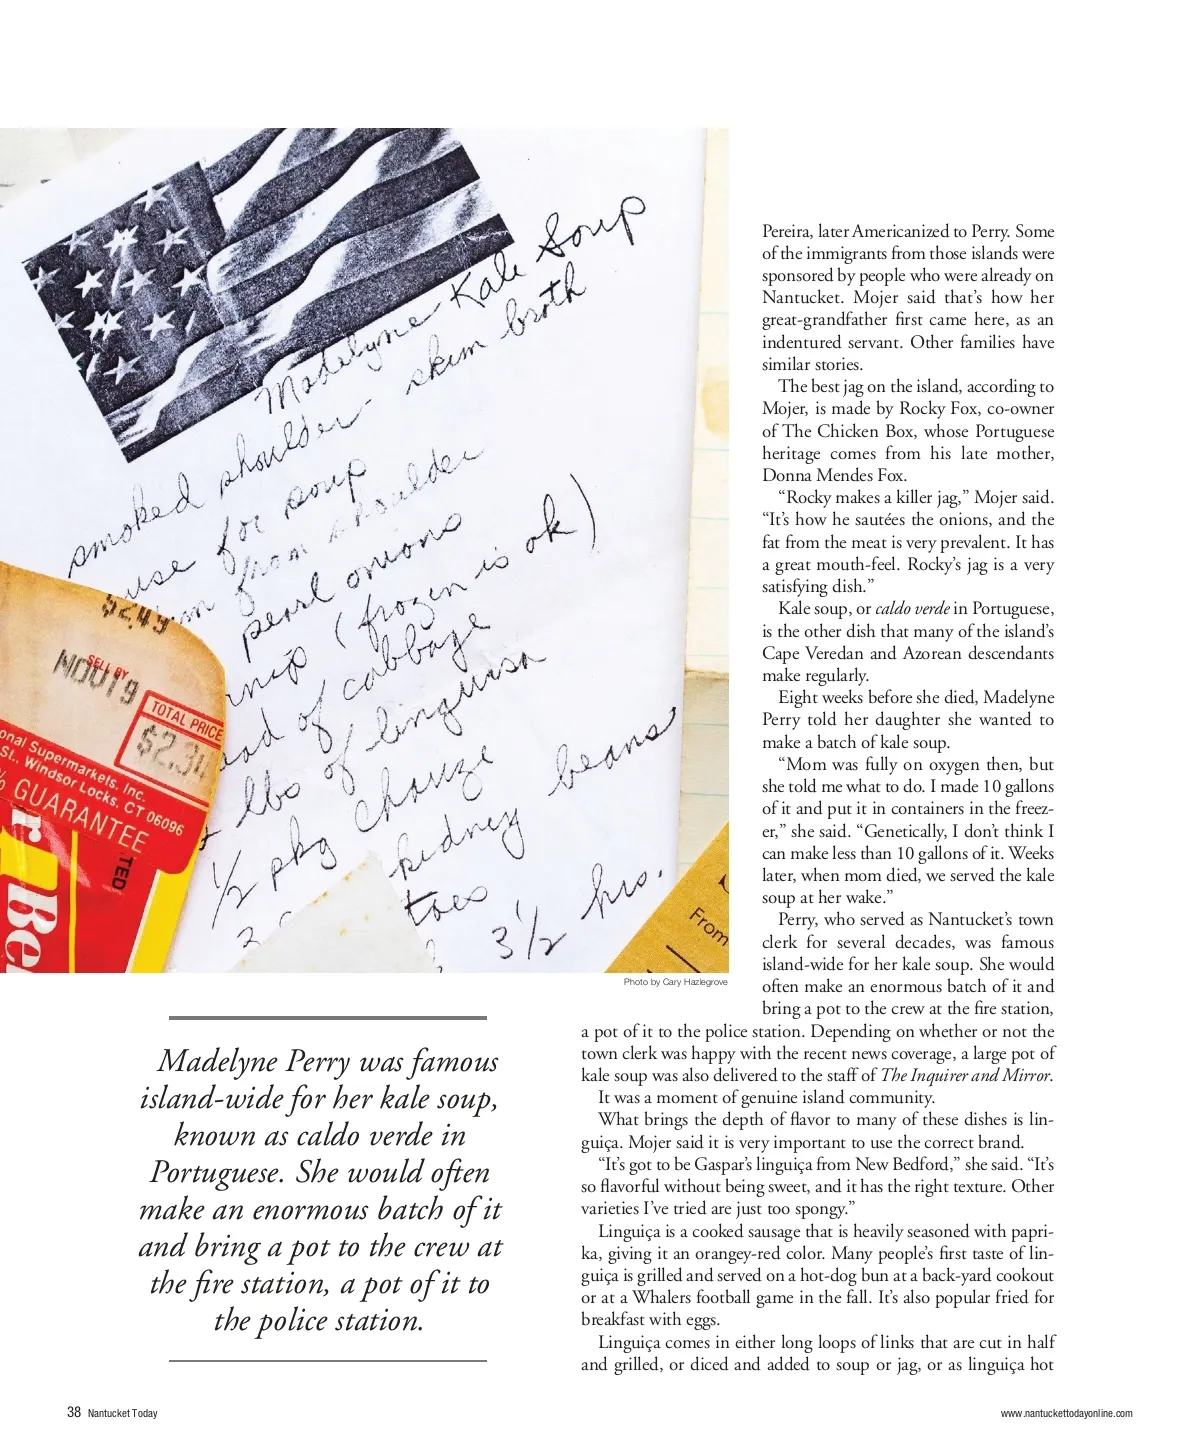 Madelyne Kale Soup
smoked shoulder - skim broth
use for soup
from shoulder
pearl onions
(frozen is ok)
of cabbage
lbs of linguisa
1/2 pkg chauze
kidney beans
toes
3 1/2 hrs.
$2.49
SELL BY
NOV19
TOTAL PRICE
$2.34
onal Supermarkets, Inc.
St., Windsor Locks, CT 06096
% GUARANTEE
TED
r Be
From
Photo by Cary Hazlegrove
Madelyne Perry was famous
island-wide for her kale soup,
known as caldo verde in
Portuguese. She would often
make an enormous batch of it
and bring a pot to the crew at
the fire station, a pot of it to
the police station.
Pereira, later Americanized to Perry. Some
of the immigrants from those islands were
sponsored by people who were already on
Nantucket. Mojer said that’s how her
great-grandfather first came here, as an
indentured servant. Other families have
similar stories.
The best jag on the island, according to
Mojer, is made by Rocky Fox, co-owner
of The Chicken Box, whose Portuguese
heritage comes from his late mother,
Donna Mendes Fox.
“Rocky makes a killer jag,” Mojer said.
“It’s how he sautées the onions, and the
fat from the meat is very prevalent. It has
a great mouth-feel. Rocky’s jag is a very
satisfying dish.”
Kale soup, or caldo verde in Portuguese,
is the other dish that many of the island’s
Cape Veredan and Azorean descendants
make regularly.
Eight weeks before she died, Madelyne
Perry told her daughter she wanted to
make a batch of kale soup.
“Mom was fully on oxygen then, but
she told me what to do. I made 10 gallons
of it and put it in containers in the freez-
er,” she said. “Genetically, I don’t think I
can make less than 10 gallons of it. Weeks
later, when mom died, we served the kale
soup at her wake.”
Perry, who served as Nantucket’s town
clerk for several decades, was famous
island-wide for her kale soup. She would
often make an enormous batch of it and
bring a pot to the crew at the fire station,
a pot of it to the police station. Depending on whether or not the
town clerk was happy with the recent news coverage, a large pot of
kale soup was also delivered to the staff of The Inquirer and Mirror.
It was a moment of genuine island community.
What brings the depth of flavor to many of these dishes is lin-
guiça. Mojer said it is very important to use the correct brand.
“It’s got to be Gaspar’s linguiça from New Bedford,” she said. “It’s
so flavorful without being sweet, and it has the right texture. Other
varieties I’ve tried are just too spongy.”
Linguiça is a cooked sausage that is heavily seasoned with papri-
ka, giving it an orangey-red color. Many people’s first taste of lin-
guiça is grilled and served on a hot-dog bun at a back-yard cookout
or at a Whalers football game in the fall. It’s also popular fried for
breakfast with eggs.
Linguiça comes in either long loops of links that are cut in half
and grilled, or diced and added to soup or jag, or as linguiça hot
38 Nantucket Today
www.nantuckettodayonline.com